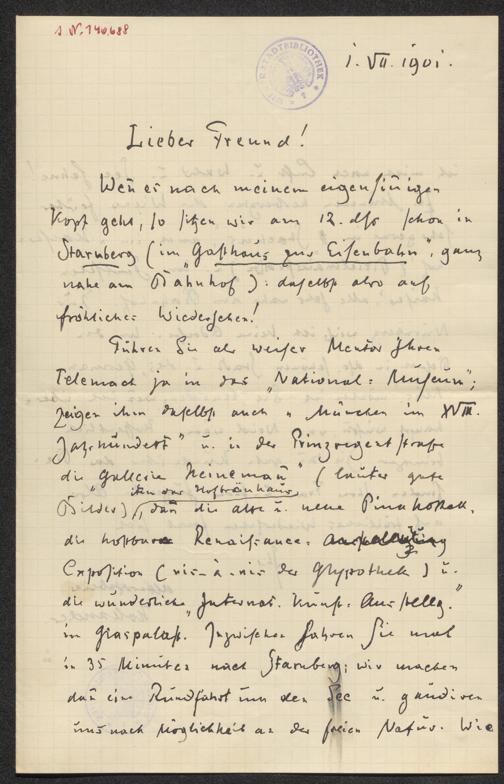 J. N. 140,688
STADTBIBLIOTHEK
1. VII. 1901.
Lieber Freund!
Weñ es nach meinem eigensinnigen
Kopf geht, so sitzen wir am 12. dſs schon in
Starnberg (im „Gasthaus zur Eisenbahn“, ganz
nahe am Bahnhof): daselbst also auf
fröhliches Wiedersehen!
Führen Sie als weiser Mentor Ihren
Telemach ja in das „National-Museum“;
zeigen ihm daselbst auch „München im XVIII.
Jahrhundert“ u. in der Prinzregentstraße
die „Gallerie Heinemañ“ (lauter gute
Bilder), das Hofbräuhaus, dañ die alte u. neue Pinakothek,
die kostbare Renaissance-
Exposition (vis-à-vis der Glyptothek) u.
die wunderliche „Internat. Kunst-Ausstellg.“
im Glaspalast. Inzwischen fahren Sie mal
in 35 Minuten nach Starnberg; wir machen
dañ eine Rundfahrt um den See u. gaudiren
uns nach Möglichkeit an der freien Natur. Wie